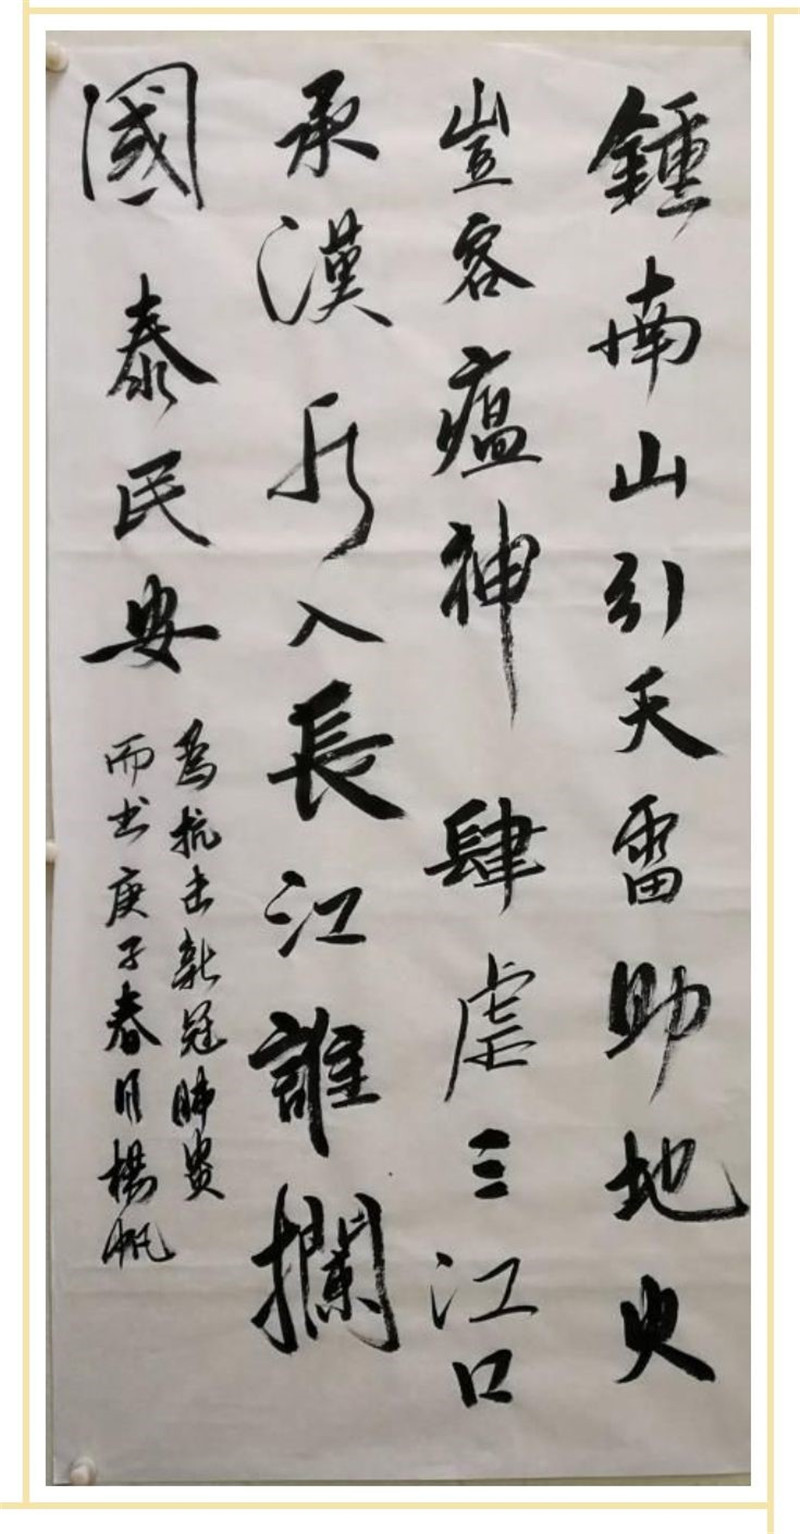 鍾南山引天雷助地火
豈容瘟神肆虐三江口
承漢水入長江誰攔
國泰民安
為抗击新冠肺炎
而书庚子春月楊帆